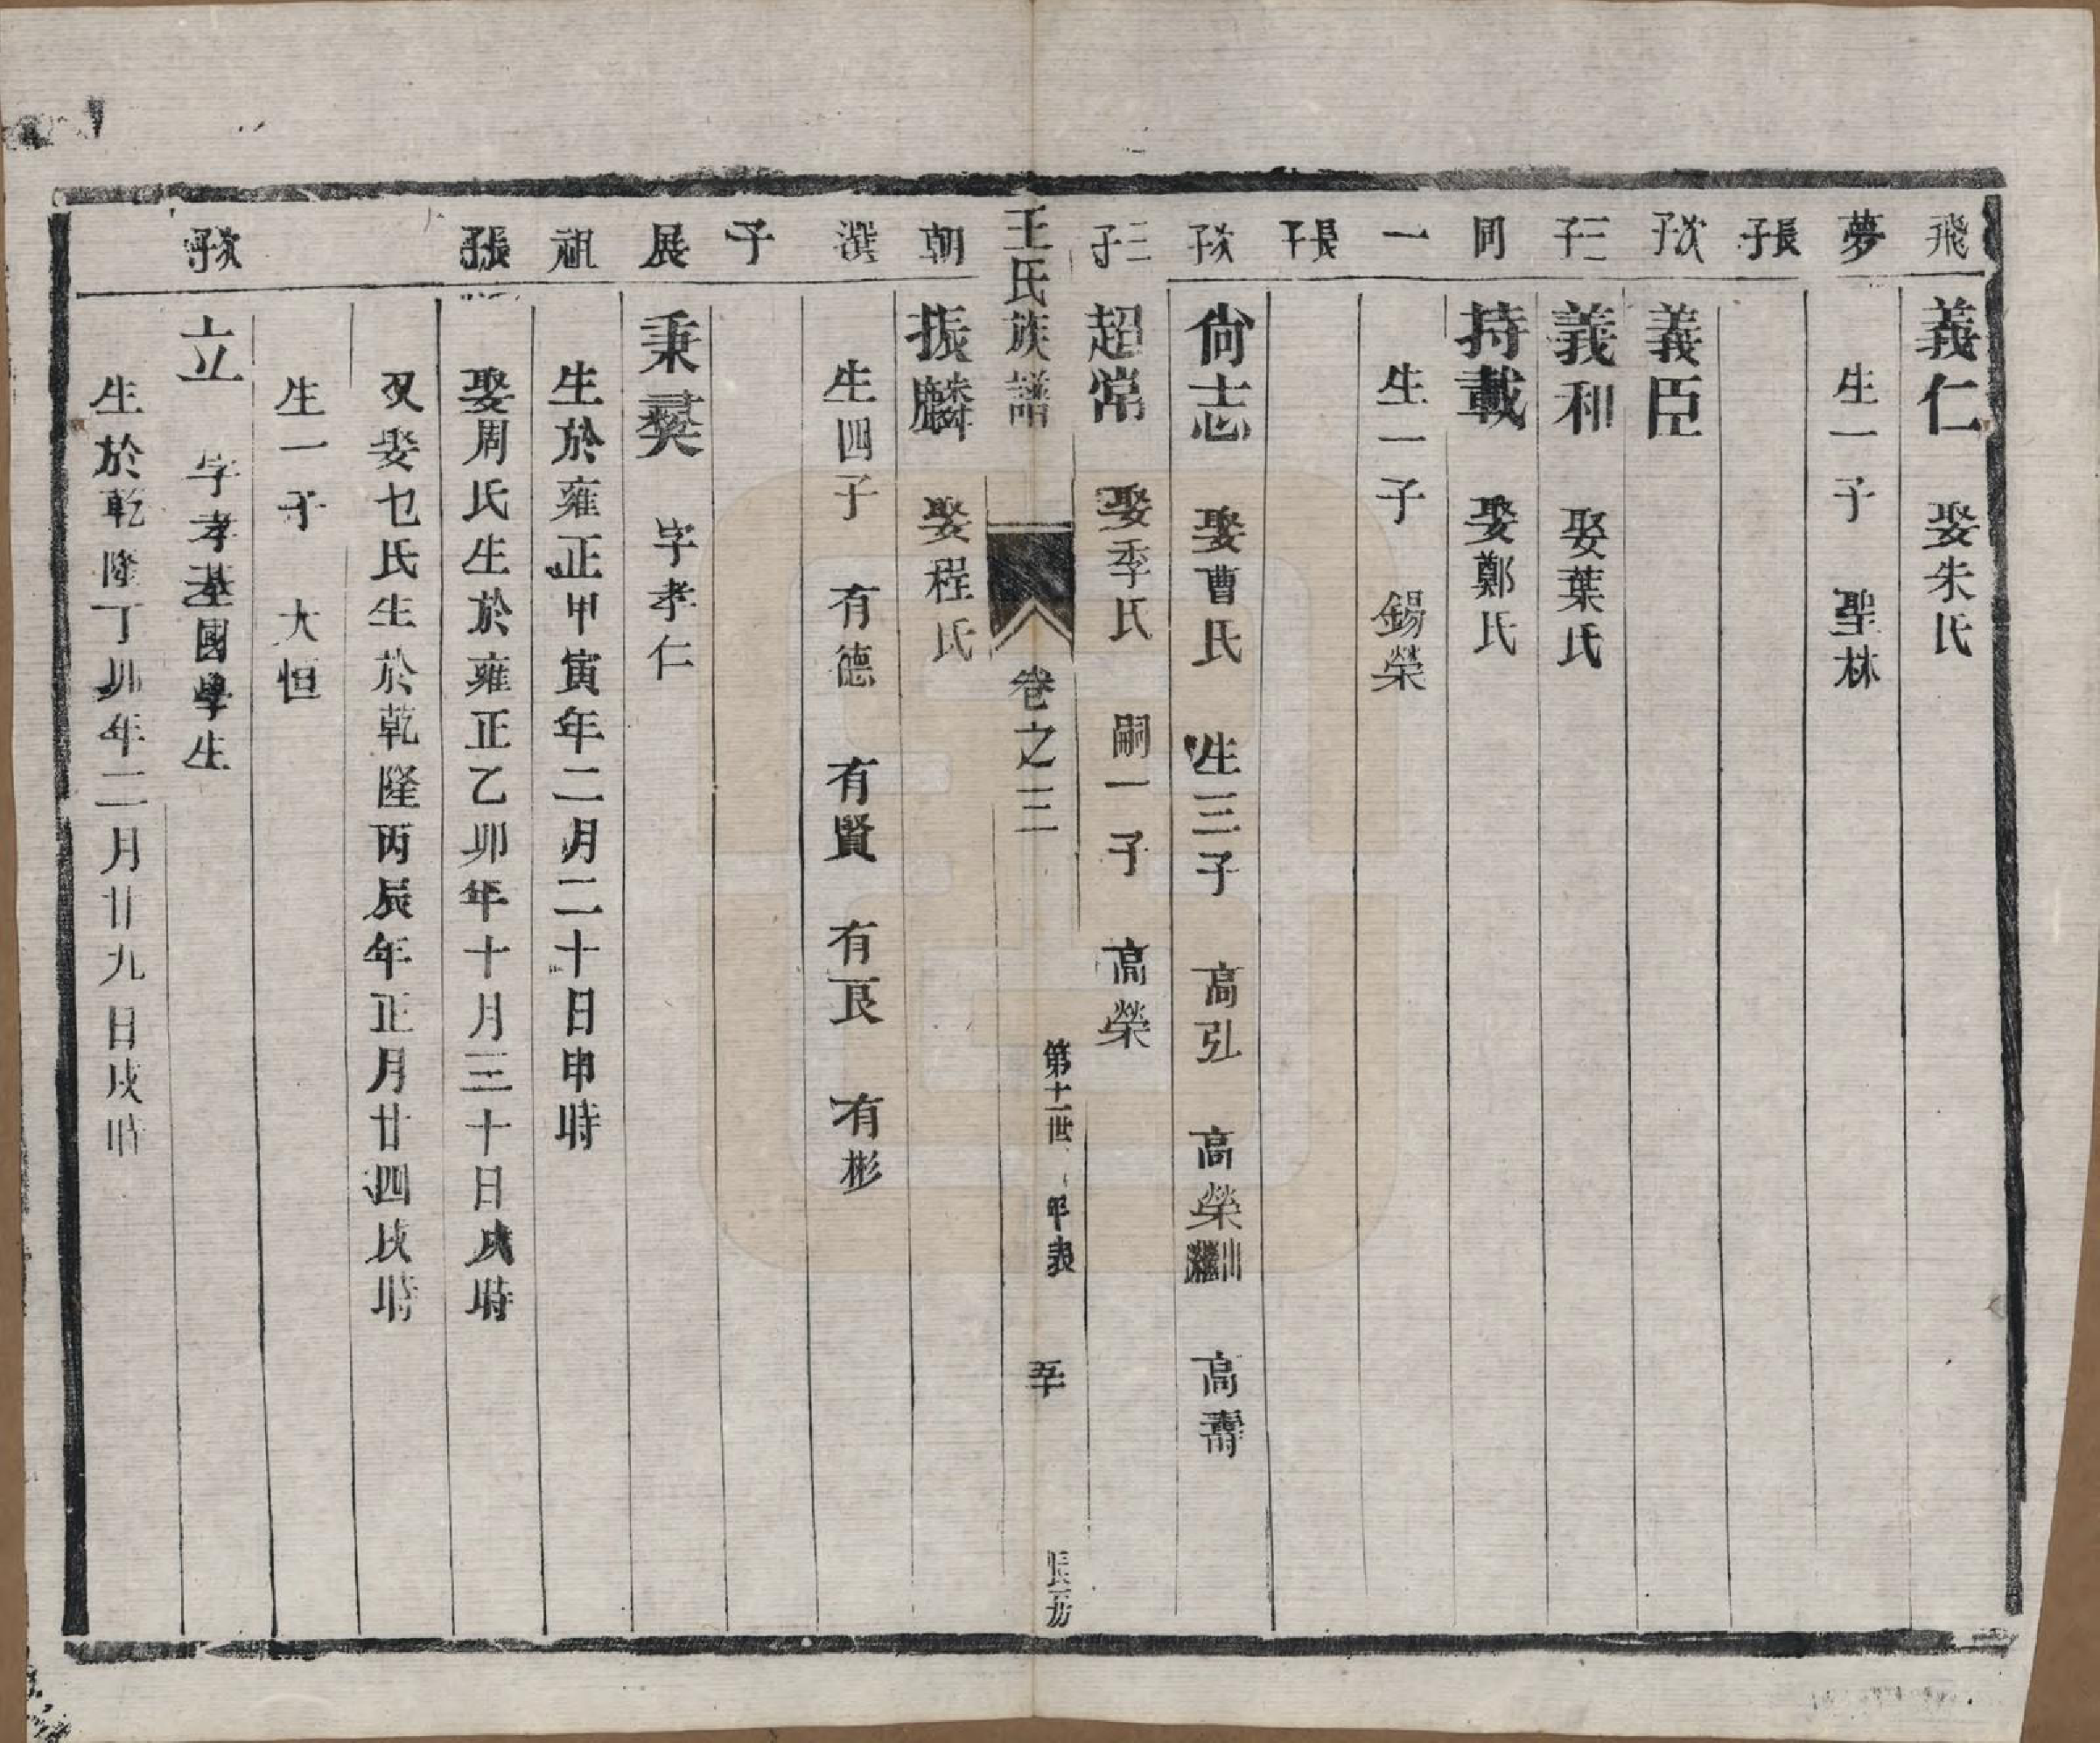 飛 義仁 娶朱氏
夢 生一子 聖林
長子
次子 義臣
三子 義和 娶葉氏
同 持載 娶鄭氏
一 生一子 錫榮
長子
次子 尙志 娶曹氏 生三子 高弘 高榮出繼 高壽
三子 超常 娶季氏 嗣一子 高榮
王氏族譜 卷之三 第十一世 年表 五十 長房
朝 振麟 娶程氏
選 生四子 有德 有賢 有良 有彬
子
展 秉彝 字孝仁
祖 生於雍正甲寅年二月二十日申時
長子 娶周氏生於雍正乙卯年十月三十日戌時
又娶七氏生於乾隆丙辰年正月廿四戌時
生一子 大恒
次子 立 字孝基國學生
生於乾隆丁卯年二月廿九日戌時